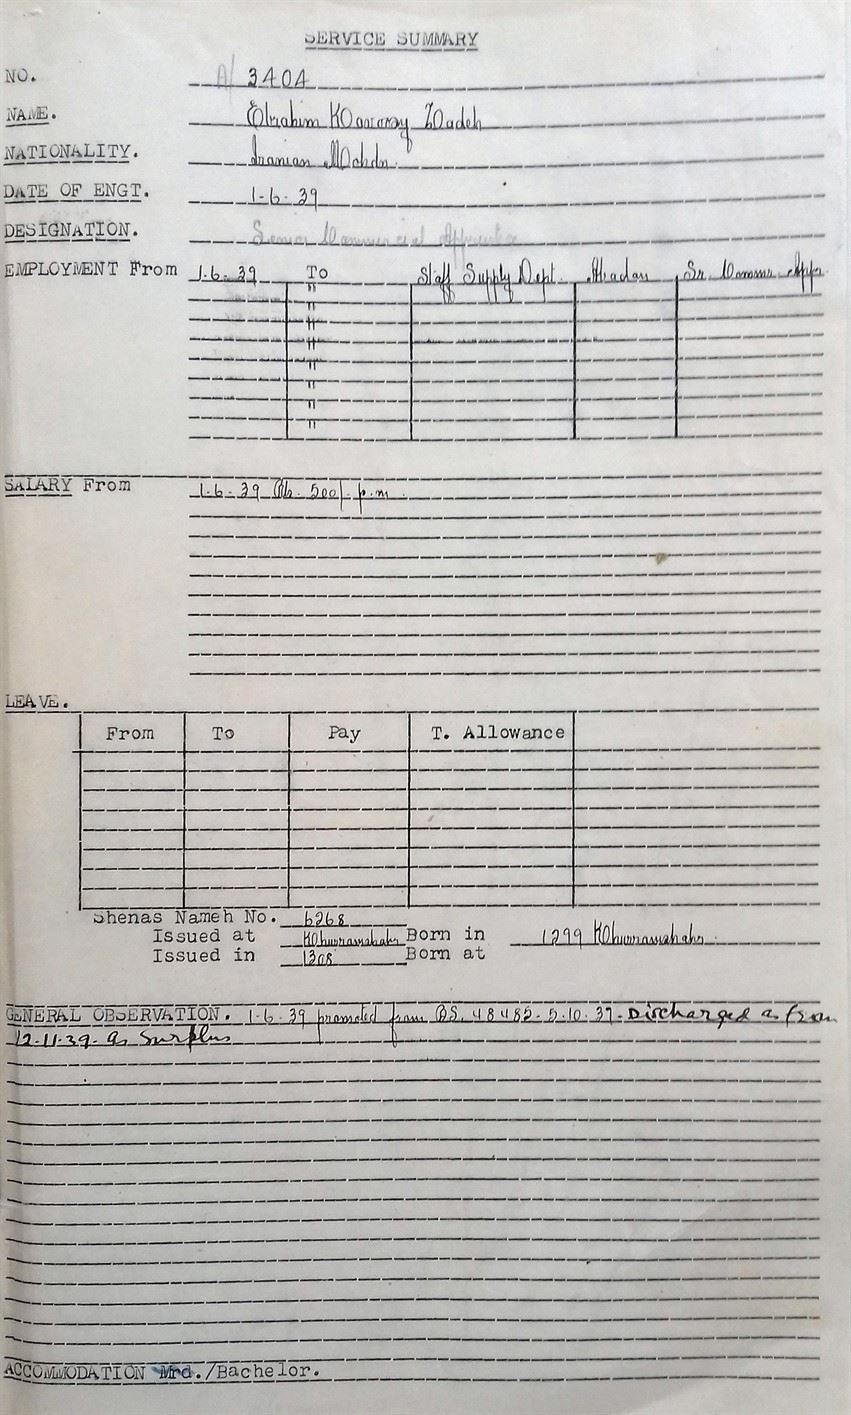 SERVICE SUMMARY
NO. A/ 3404
NAME. Ebrahim Zadeh
NATIONALITY. Iranian Mohdn.
DATE OF ENGT. 1-6-39
DESIGNATION. Senior Commercial Apprentice
EMPLOYMENT From 1-6-39 To Staff Supply Dept. Abadan Sr. Commr. Appr.
"
"
"
"
"
"
"
"
SALARY From 1-6-39 Rls. 500/- p.m.
LEAVE.
From To Pay T. Allowance
Shenas Nameh No. 6268
Issued at Khurramshahr Born in 1299 Khurramshahr.
Issued in 1308 Born at
GENERAL OBSERVATION. 1-6-39 promoted from 48485-5-10-37- Discharged as from
12-11-39- as Surplus
ACCOMMODATION Mrd./Bachelor.